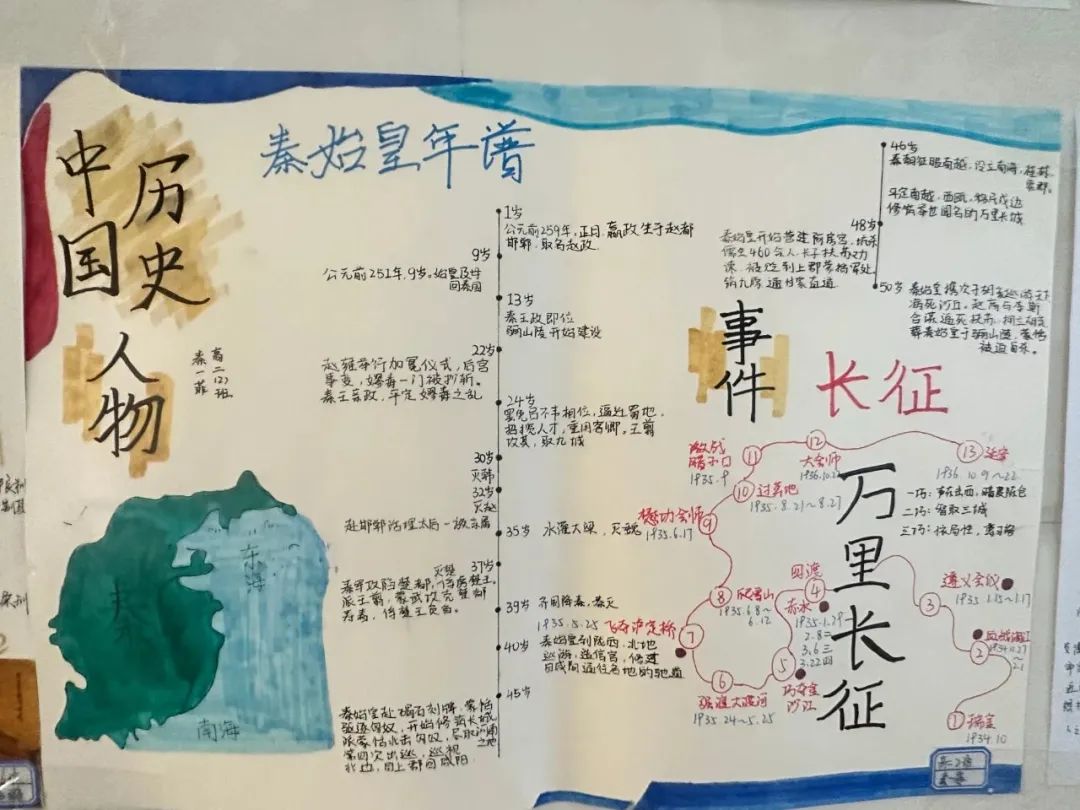 中国
历史
人物
高二(2)班
秦一菲
秦始皇年谱
1岁
公元前259年,正月,嬴政生于赵都
邯郸,取名赵政。
9岁
公元前251年,9岁。始皇及母
回秦国
13岁
秦王政即位
骊山陵开始建设
22岁
举行加冕仪式,后宫
事变,嫪毐一门被抄斩。
秦王亲政,平定嫪毐之乱
24岁
罢免吕不韦相位,逼迁蜀地,
招揽人才,重用客卿。王翦
攻其,取九城
30岁
灭韩
32岁
灭赵
赴邯郸处理太后一族亲属
35岁 水灌大梁,灭魏
37岁
灭楚
秦军攻陷楚都,俘虏楚王。
派王翦,蒙武攻克楚都
寿春,俘楚王负刍。
39岁 齐国降秦,秦灭
40岁
秦始皇到陇西,北地
巡游,造信宫,修建
自咸阳通往各地的驰道
45岁
派蒙恬北击匈奴,尽取河南
之地
第四次出巡,巡视
北边,自上郡回咸阳。
东海
南海
46岁
秦朝征服南越,设立南海,桂林,
象郡。
平定南越,西瓯,移民戍边
修筑举世闻名的万里长城
48岁
秦始皇开始营建阿房宫,坑杀
儒生460余人,长子扶苏力
谏,被贬到上郡蒙恬军处
50岁
病死沙丘。赵高与李斯
合谋逼死扶苏,
葬秦始皇于骊山陵,蒙恬
被迫自杀。
事件
长征
万里长征
激战
腊子口
1935.9
⑪
⑫
大会师
1936.10.22
⑬
延安
1936.10.9~22
⑩
过草地
1935.8.21~8.27
懋功会师
1935.6.17
⑨
一巧:声东击西,暗度陈仓
二巧:智取三城
⑧
爬雪山
1935.6.8~
6.12
四渡
赤水
④
1935.1.29~
2.8二
3.6三
3.22四
遵义会议
1935.1.15~1.17
③
1935.5.25
飞夺泸定桥
⑦
⑥
强渡大渡河
1935 24~5.25
⑤
巧夺金
沙江
血战湘江
1934.11.27
②
①
瑞金
1934.10